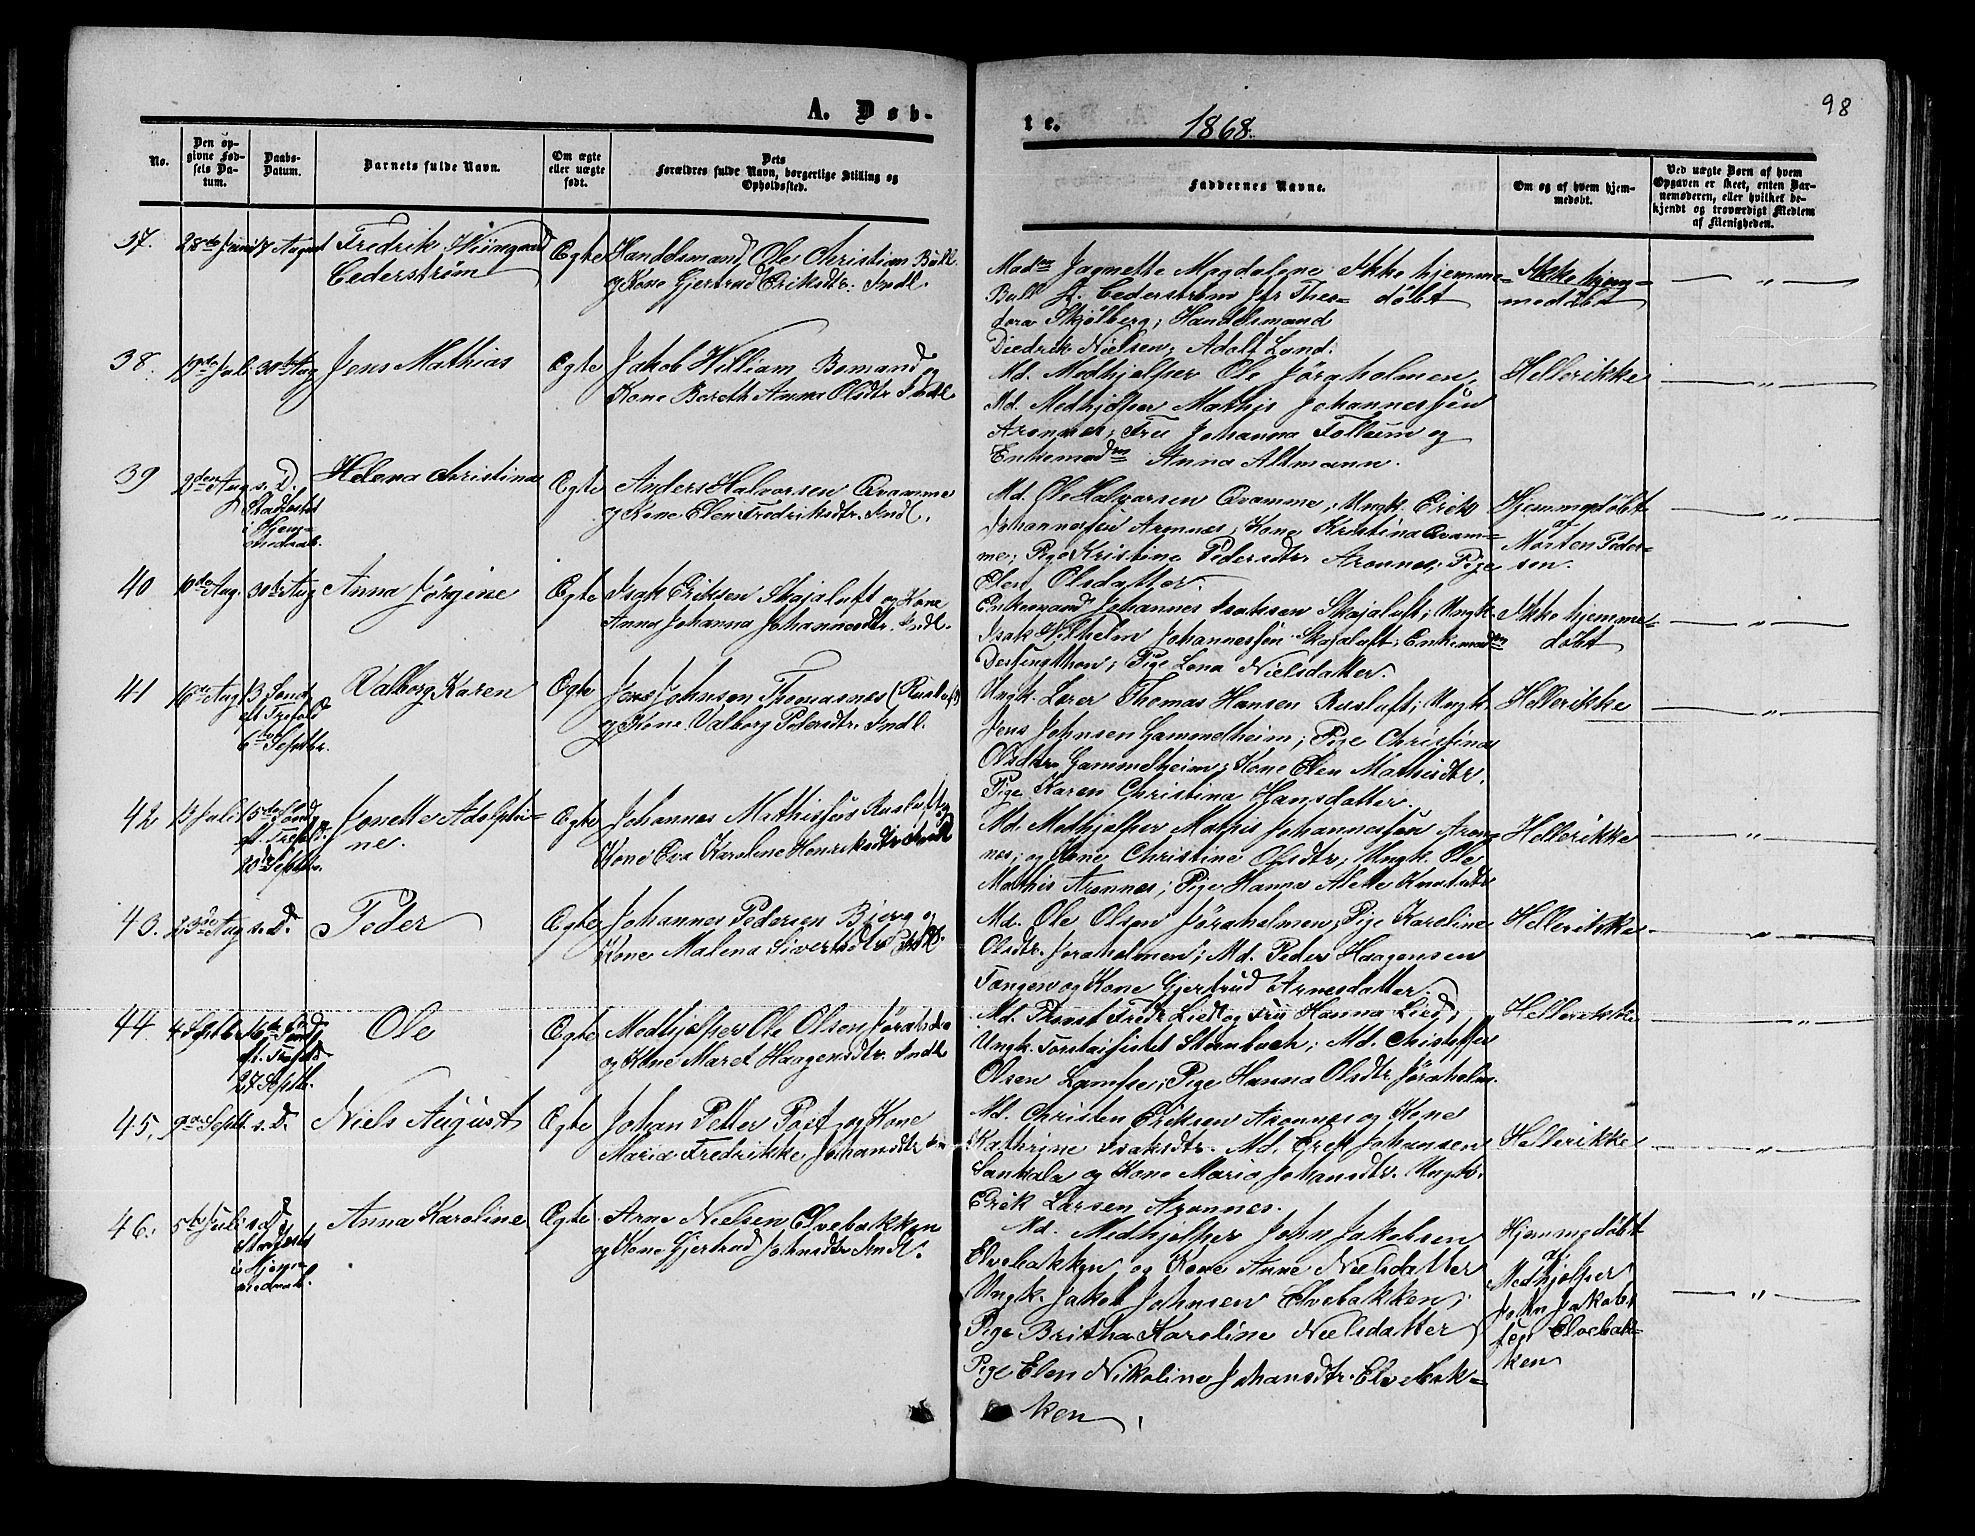 98
A. Døb-
te.
1868.
No.
Den op-
givne Fød-
sels Da-
tum.
Daabs-
Datum.
Barnets fulde Navn.
Om ægte
eller uægte
født.
Dets
Forældres fulde Navn, borgerlige Stilling og
Opholdssted.
Faddernes Navne.
Om og af hvem hjem-
medøbt.
Ved uægte Børn af hvem
Opgaven er skeet, enten Bar-
nemoderen, eller hvilket be-
kjendt og troværdigt Medlem
af Menigheden.
37. 28de Juni August Fredrik
Cederstrøm
Ægte Handelsmand Ole Christian Bull
og Kone Gjertrud Eriksdtr. Indl.
Magdalene Ikke hjemme-
Bull Cederstrøm døbt
Skjølberg; Handelsmand
Diedrik Nielsen; Adolf Lund.
Ikke hjem-
medøbt
— " —
38. Juli 30te Aug Jens Mathias
Ægte Jakob William Bomand og
Kone Bereth Anna Olsdtr Indl
Md. Medhjelper Ole Jøraholmen,
Md. Medhjelper Mathis Johannessen
Aronnes; Fru Johanna og
Enkemadm Anna Altmann.
Hellerikke
— " —
39 2den Aug s. D.
Stadfestet
i Hjem-
medaab.
Helena Christina
Ægte Anders Halvorsen Qvamme
og Kone Elen Fredriksdtr. Indl.
Md. Ole Halvorsen Qvamme; Ungk. Erik
Johannessen Aronnes; Kone Kristina Qvam-
me; Pige Kristine Pedersdtr Aronnes; Pige
Elen Olsdatter.
Hjemmedøbt
af
Morten Peder-
sen.
— " —
40 10de Aug. 30te Aug Anna Jørgine
Ægte Isak Eriksen Skajaluft og Kone
Anna Johanna Johannesdtr. Indl.
Enkemand Johannes Isaksen Skajaluft; Ungk.
Isak Wilhelm Johannessen Skajaluft; Enkemadm
Pige Lena Nielsdatter.
Ikke hjemme-
døbt
— " —
41 16de Aug 13 Sønd
ft. Trefold
6te Septbr.
Valborg Karen
Ægte Jens Johnsen Thomasnes (Rusluft)
og Kone Valborg Pedersdtr. Indl.
Ungk. Lærer Thomas Hansen Rusluft; Ungk.
Jens Johnsen Gammelheim; Pige Christina
Olsdtr Gammelheim; Kone Elen Mathisdtr,
Pige Karen Christina Hansdatter.
Hellerikke
— " —
42 Juli 15de Sønd
ft. Trefold.
20de Septbr.
Jonette Adolphi-
ne.
Ægte Johannes Mathissen Rusluft og
Kone Eva Karoline Henriksdtr Indl
Md. Medhjelper Mathis Johannessen Aron-
nes; og Kone Christine Olsdtr; Ungk. Ole
Mathis Aronnes; Pige Hanna Alette Knutsdtr
Hellerikke
— " —
43. 23de Aug s. D. Peder
Ægte Johannes Pedersen Bjerg og
Kone Malena Sivertsdtr Indl.
Md. Ole Olsen Jøraholmen; Pige Karoline
Olsdtr. Jøraholmen; Md. Peder Haagensen
Tangen og Kone Gjertrud Arnesdatter
Hellerikke
— " —
44. 4 Septbr 16de Sønd
ft. Trefold
27 Septb.
Ole
Ægte Medhjelper Ole Olsen
og Kone Maret Haagensdtr. Indl
Md. Provst Fredr Lied og Fru Hanna Lied;
Ungk. Steinbach; Md. Christoffer
Olsen Pige Hanna Olsdtr Jøraholm.
Hellerikke
— " —
45. 9de Septb. s. D. Niels August
Ægte Johan Petter Post og Kone
Maria Fredrikke Johansdtr
Md. Christen Eriksen Aronnes og Kone
Kathrine Isaksdtr. Md. Johansen
og Kone Maria Johansdtr. Ungk.
Erik Larsen Aronnes.
Hellerikke
— " —
46. 5te Juli s. d.
i Hjem-
medaab.
Anna Karoline
Ægte Arne Nielsen Elvebakken
og Kone Gjertrud Johnsdtr Indl.
Md. Medhjelper John Jakobsen
Elvebakken og Kone Anne Nielsdatter
Ungk. Jakob Johnsen Elvebakken;
Pige Britha Karoline Nielsdatter
Pige Elen Nikoline Johansdtr. Elvebak-
ken.
Hjemmedøbt
af
Medhjelper
John Jakob-
sen Elvebak-
ken
— " —